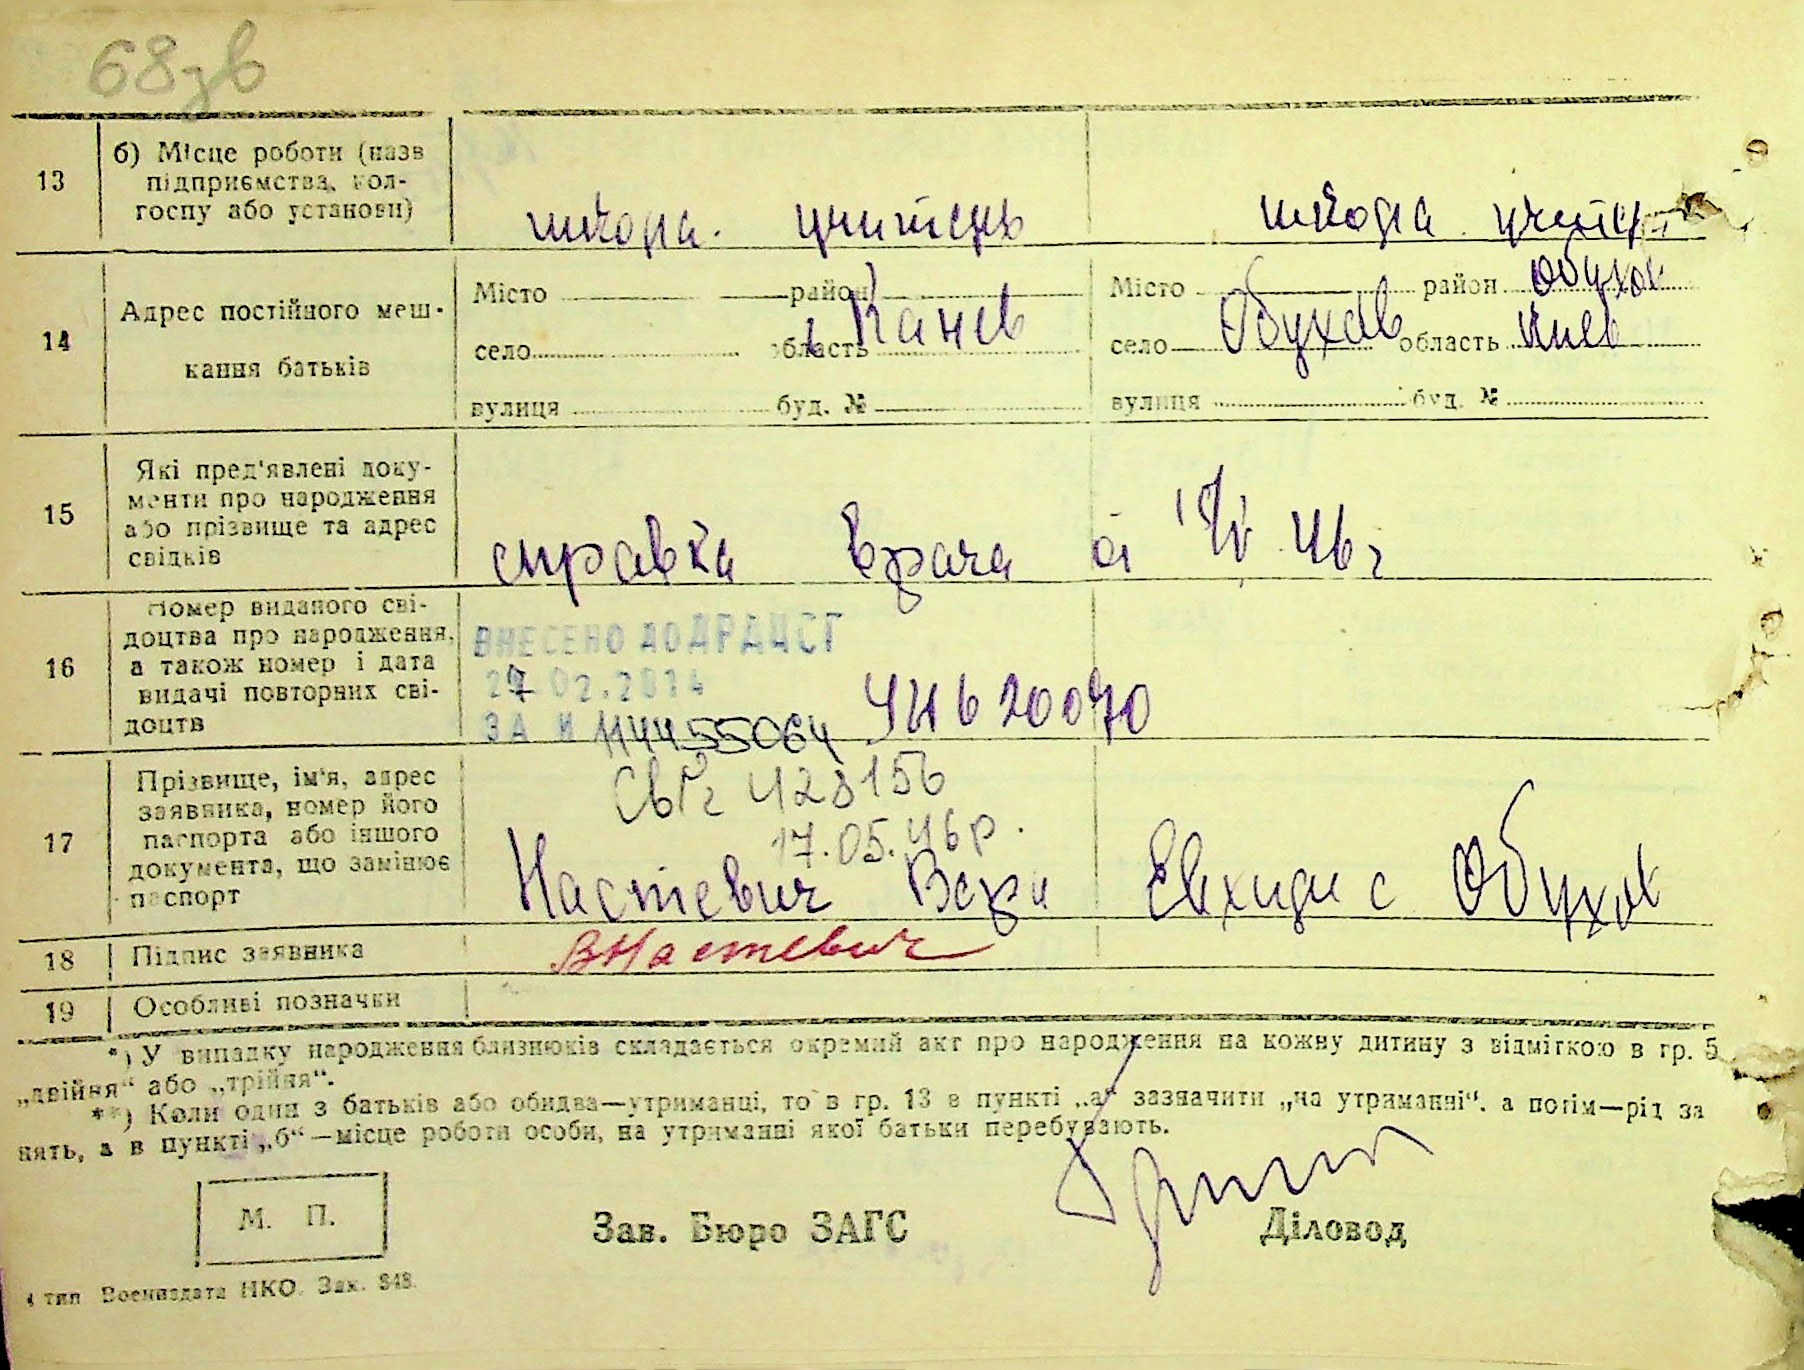 68зв
13 б) Місце роботи (назв підприємства, кол- госпу або установи) школа. учитель школа учитель
14 Адрес постійного меш- кання батьків
Місто район Місто район Обухов
г. Канев
село область село Обухов область Киев
вулиця буд. № вулиця буд. №
15 Які пред'явлені доку- менти про народження або прізвище та адрес свідків справка врача 46 г
16 Номер виданого сві- доцтва про народження, а також номер і дата видачі повторних сві- доцтв
ВНЕСЕНО ДО ДРАЦСГ
27 02.2014
ЗА № 114455064 УН 620070
17 Прізвище, ім'я, адрес заявника, номер його паспорта або іншого документа, що замінює паспорт
428156
17.05.46р.
Настевич Вера с Обухов
18 Підпис заявника ВНастевич
19 Особливі позначки
*) У випадку народження близнюків складається окремий акт про народження на кожну дитину з відміткою в гр. 5
„двійня“ або „трійня“.
**) Коли один з батьків або обидва—утриманці, то в гр. 13 в пункті „а“ зазначити „на утриманні“. а потім—рід за
нять, а в пункті „б“—місце роботи особи, на утриманні якої батьки перебувають.
М. П.
Зав. Бюро ЗАГС Діловод
4 тип Воениздата НКО. Зак. 848.